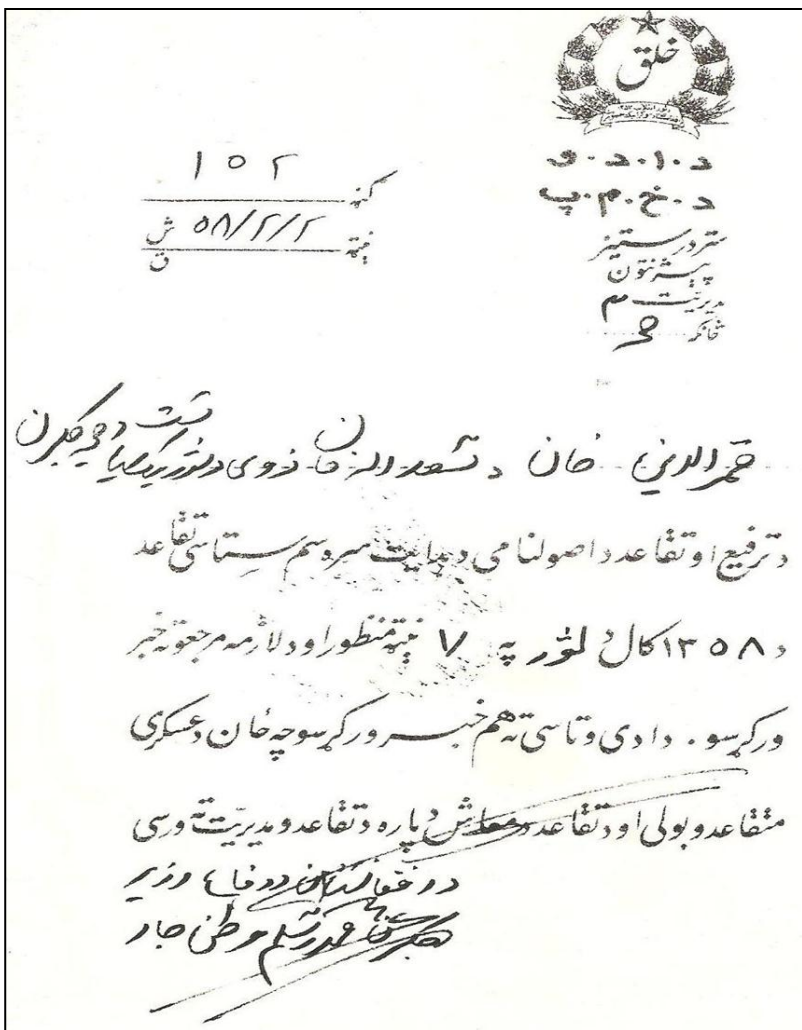 خلق
د.ا.د.و
د.خ.م.پ
ستردرستیز
پیژنتون
مدیریت ۳
څانګه
ګڼه ۱۵۲
نېټه ۵۸/۲/۲ ش
ق
قمرالدین خان د
د ترفیع او تقاعد د اصولنامی د هدایت سره سم ستاسی تقاعد
د ۱۳۵۸ کال د لور په ۷ نېټه منظور او د لازمه مرجعو ته خبر
ورکړسو. دادی وتاسی ته هم خبر ورکړسو چه ځان د عسکری
متقاعد وبولی او د تقاعد د معاش دپاره د تقاعد و مدیریت ته ورسی
د افغانستان د دفاع وزیر
محمد اسلم وطن جار